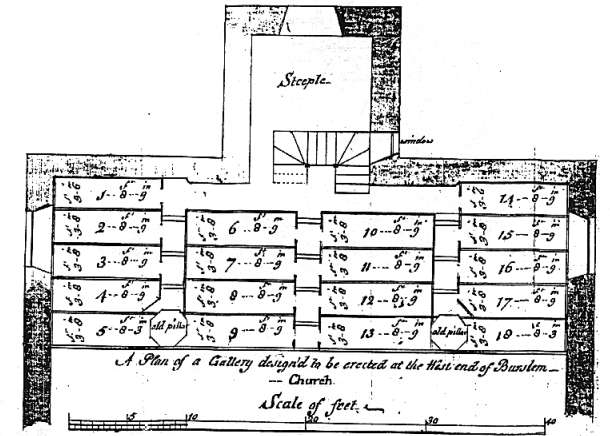 Steeple
window
1 -- 8 -- 9
2 -- 8 -- 9
3 -- 8 -- 9
4 -- 8 -- 9
5 -- 8 -- 3
6 -- 8 -- 9
7 -- 8 -- 9
8 -- 8 -- 9
9 -- 8 -- 9
10 -- 8 -- 9
11 -- 8 -- 9
12 -- 8 -- 9
13 -- 8 -- 9
14 -- 8 -- 9
15 -- 8 -- 9
16 -- 8 -- 9
17 -- 8 -- 9
18 -- 8 -- 3
old pillar
old pillar
A Plan of a Gallery design'd to be erected at the West end of Burslem
Church
Scale of feet
5 10 20 30 40